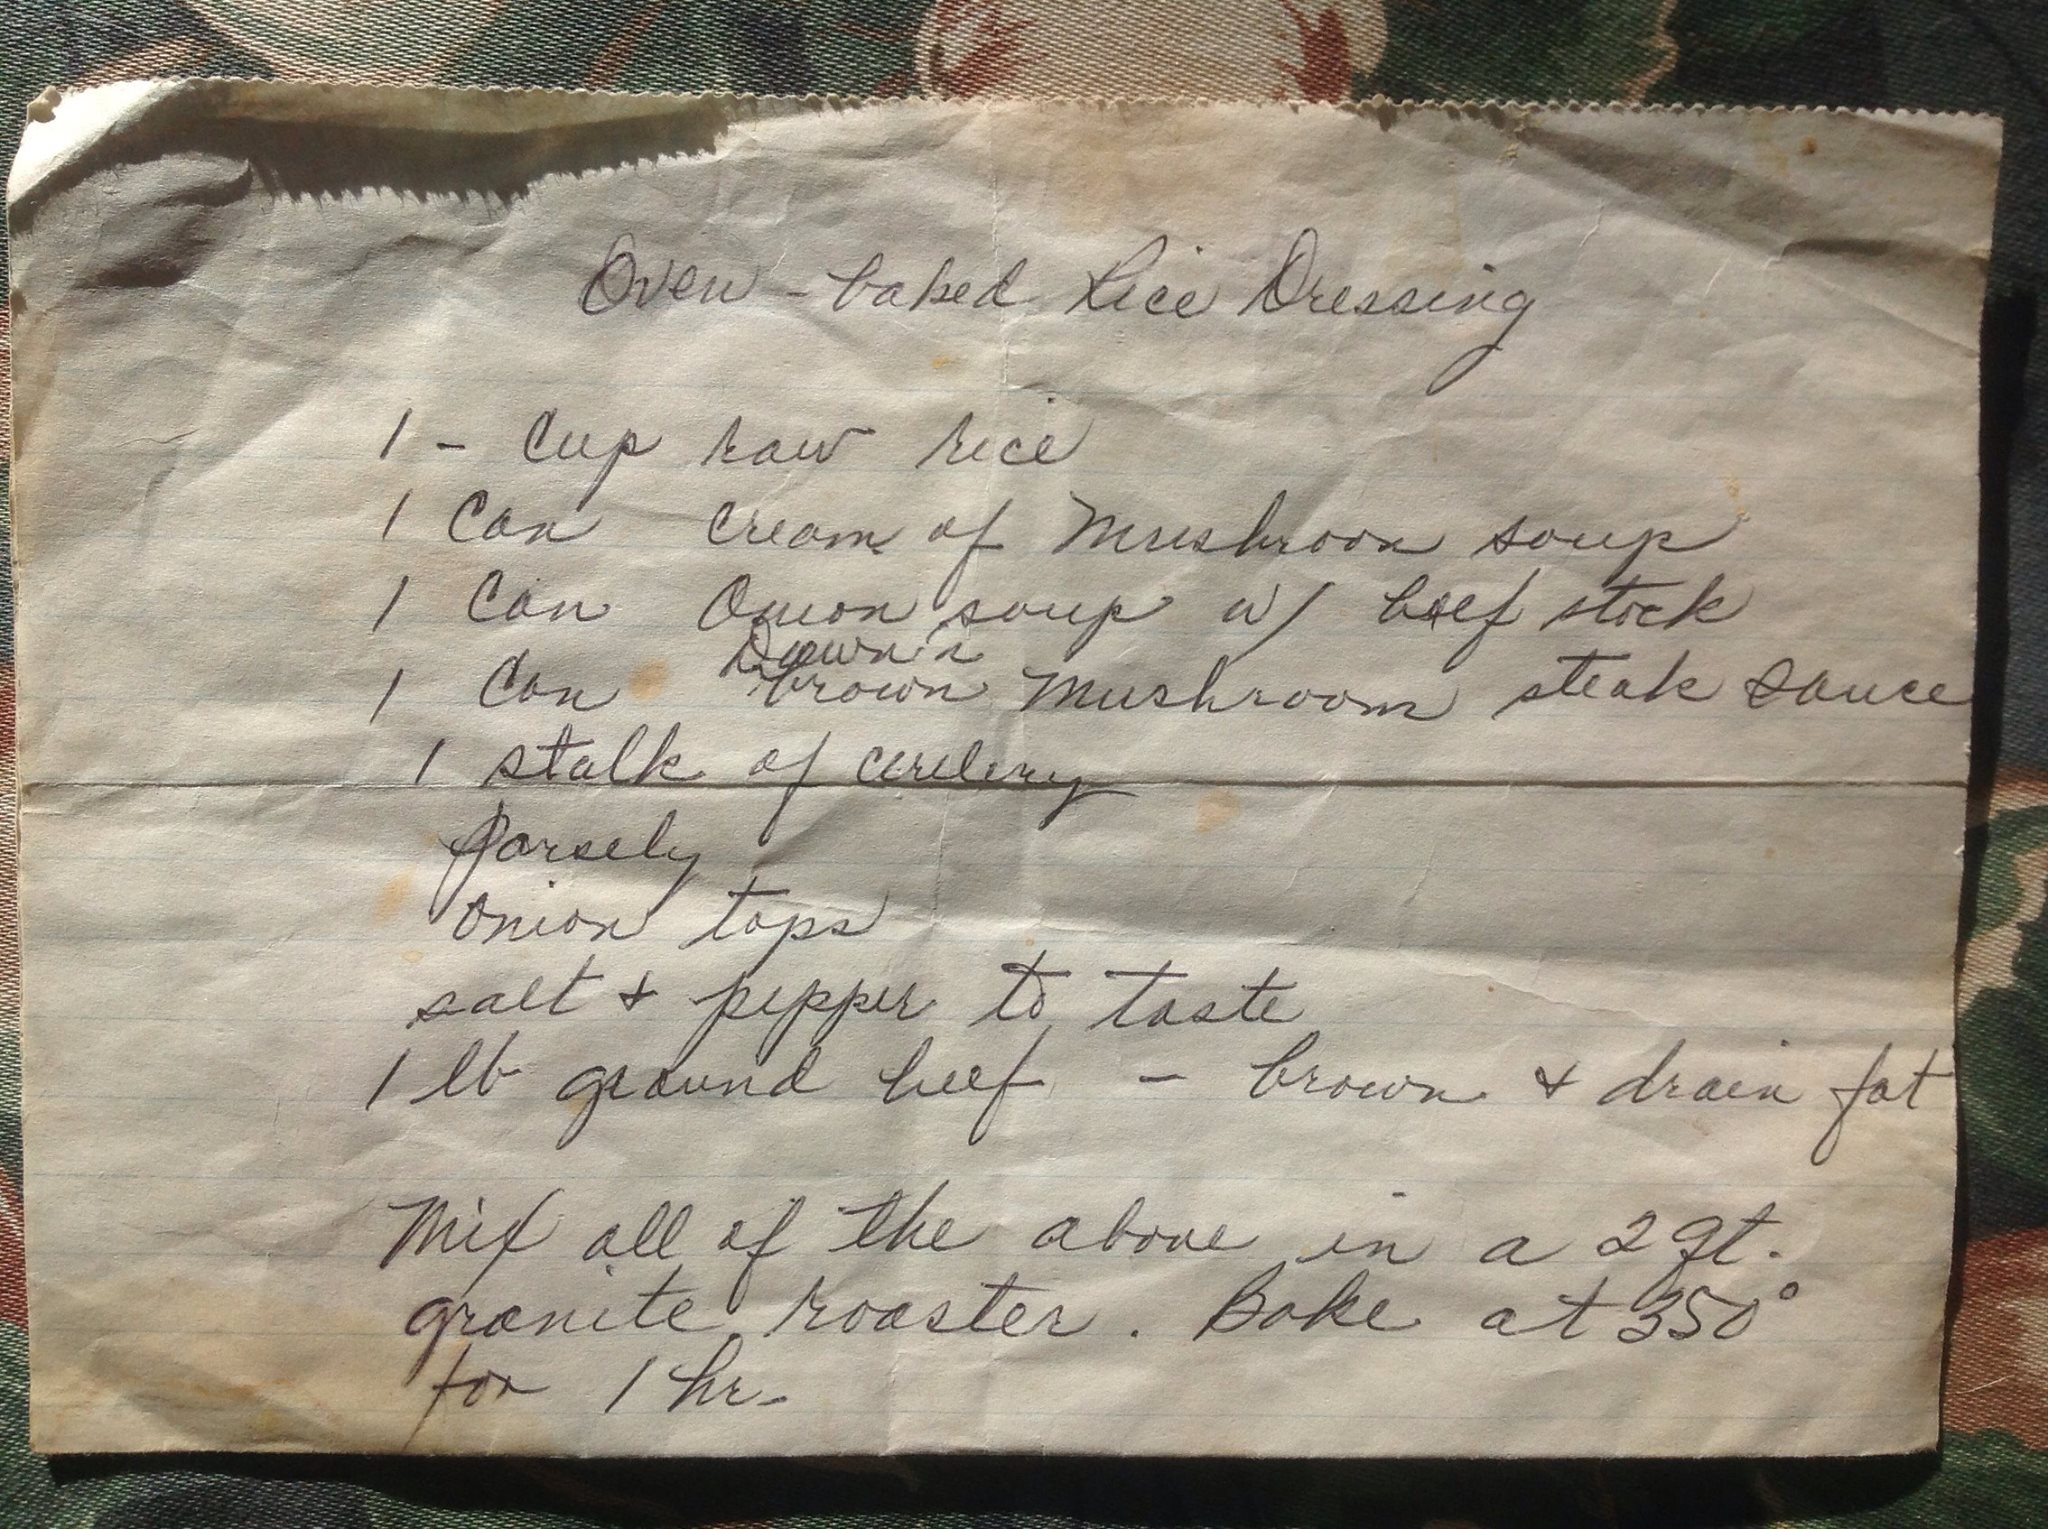 Oven-baked Rice Dressing
1 - Cup raw rice
1 Can cream of Mushroom soup
1 Can Onion soup w/ beef stock
Dawn's
1 Can brown Mushroom steak sauce
1 stalk of cerelery
Parsely
onion tops
salt & pepper to taste
1 lb ground beef - brown & drain fat
Mix all of the above in a 2 qt.
granite roaster. Bake at 350°
for 1 hr.